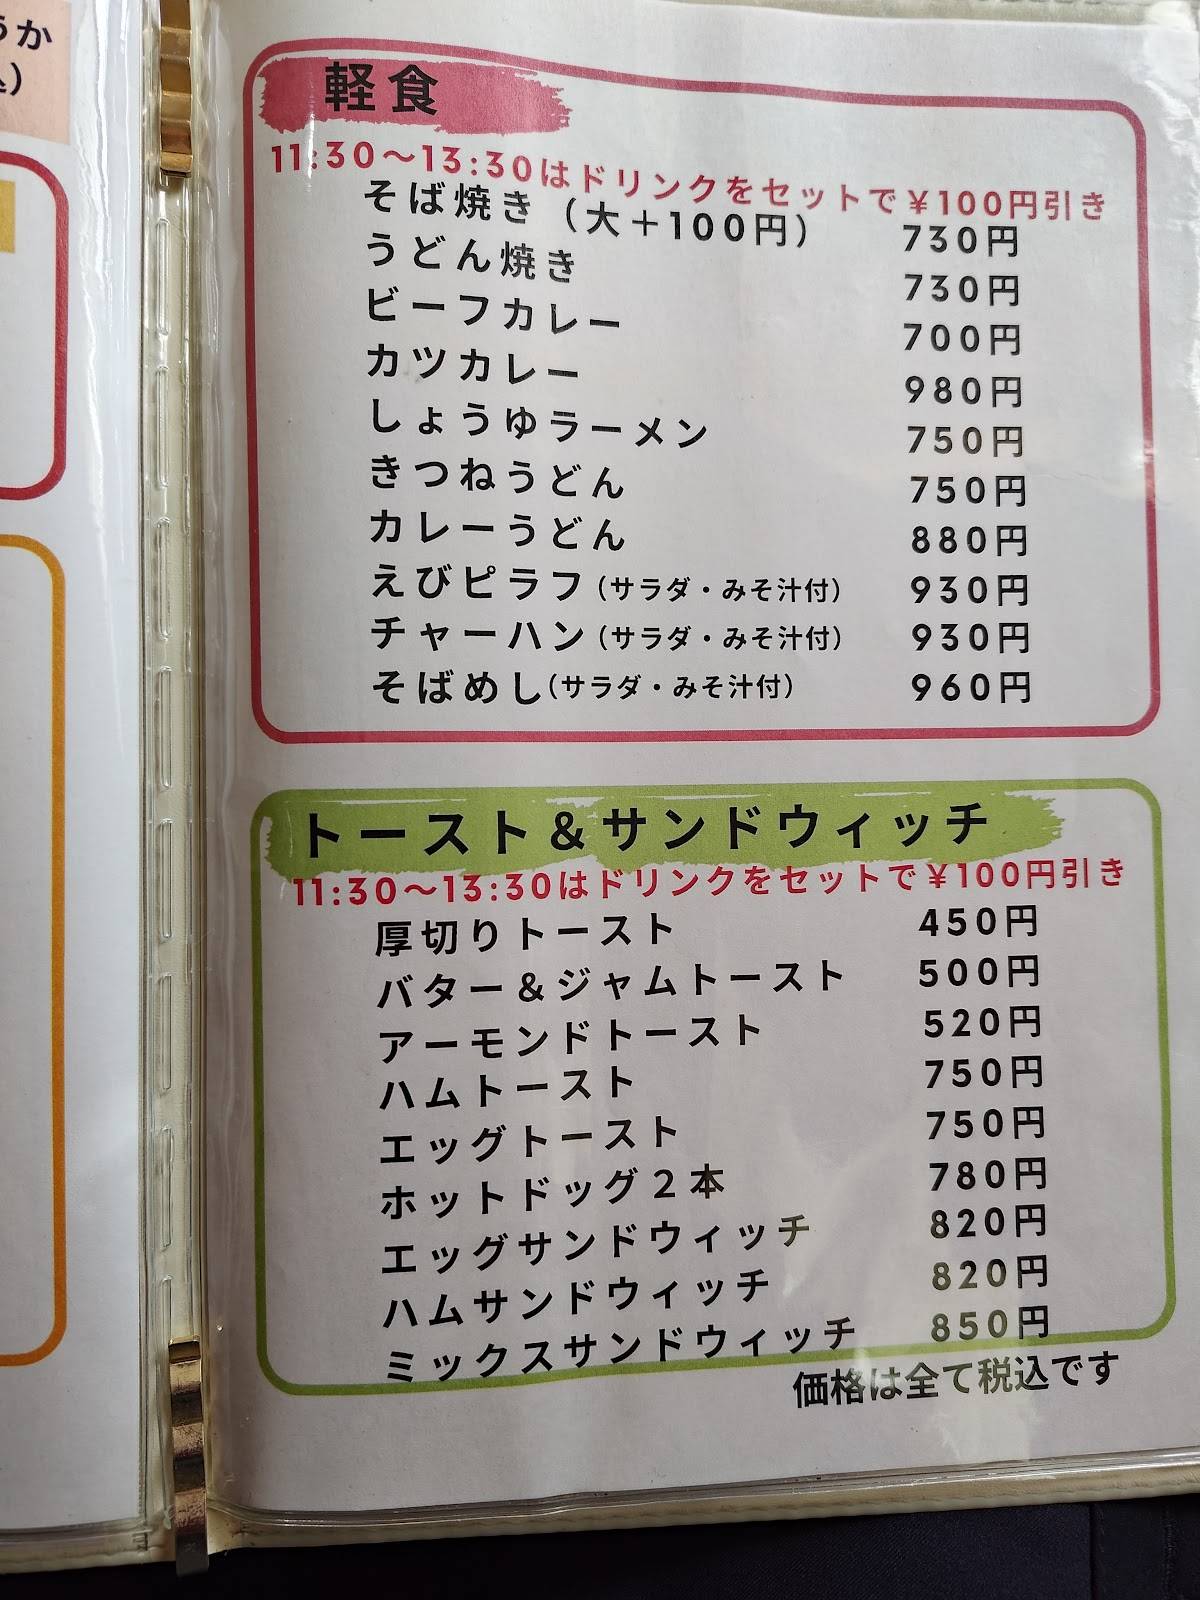 うか
込)
軽食
11:30〜13:30はドリンクをセットで¥100円引き
そば焼き（大＋100円） 730円
うどん焼き 730円
ビーフカレー 700円
カツカレー 980円
しょうゆラーメン 750円
きつねうどん 750円
カレーうどん 880円
えびピラフ（サラダ・みそ汁付） 930円
チャーハン（サラダ・みそ汁付） 930円
そばめし（サラダ・みそ汁付） 960円
トースト＆サンドウィッチ
11:30〜13:30はドリンクをセットで¥100円引き
厚切りトースト 450円
バター＆ジャムトースト 500円
アーモンドトースト 520円
ハムトースト 750円
エッグトースト 750円
ホットドッグ２本 780円
エッグサンドウィッチ 820円
ハムサンドウィッチ 820円
ミックスサンドウィッチ 850円
価格は全て税込です